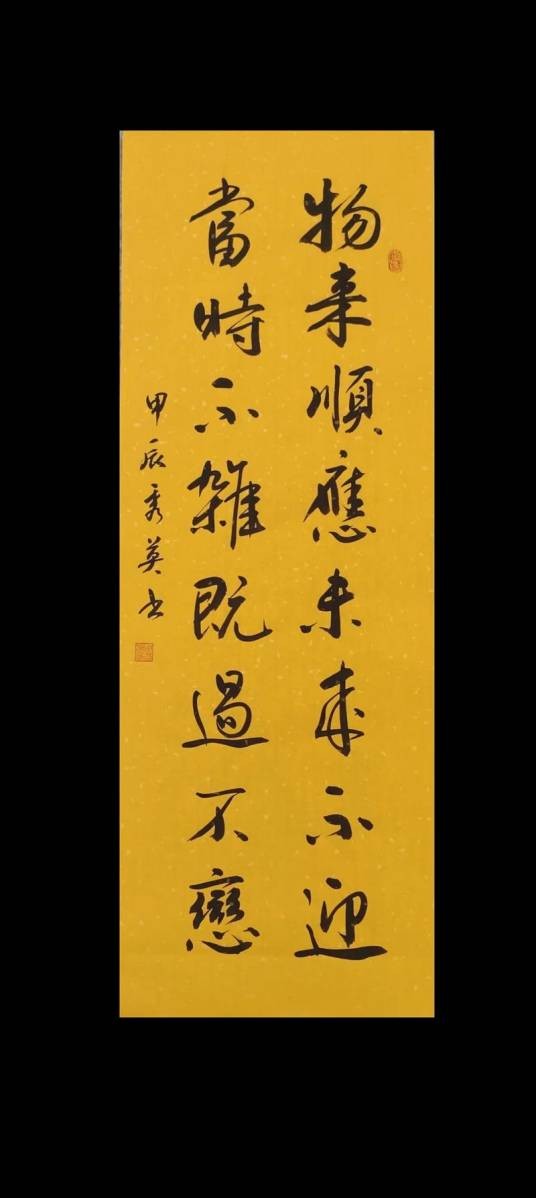 物来順應未来不迎
當時不雜既過不戀
甲辰秀英书